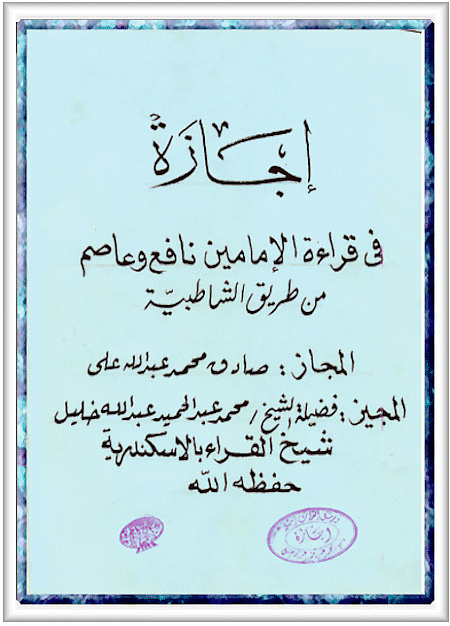 إجازة
في قراءة الإمامين نافع وعاصم
من طريق الشاطبيّة
المجاز : صادق محمد عبدالله على
المجيز : فضيلة الشيخ / محمد عبد الحميد عبدالله خليل
شيخ القراء بالاسكندرية
حفظه الله
إجازة